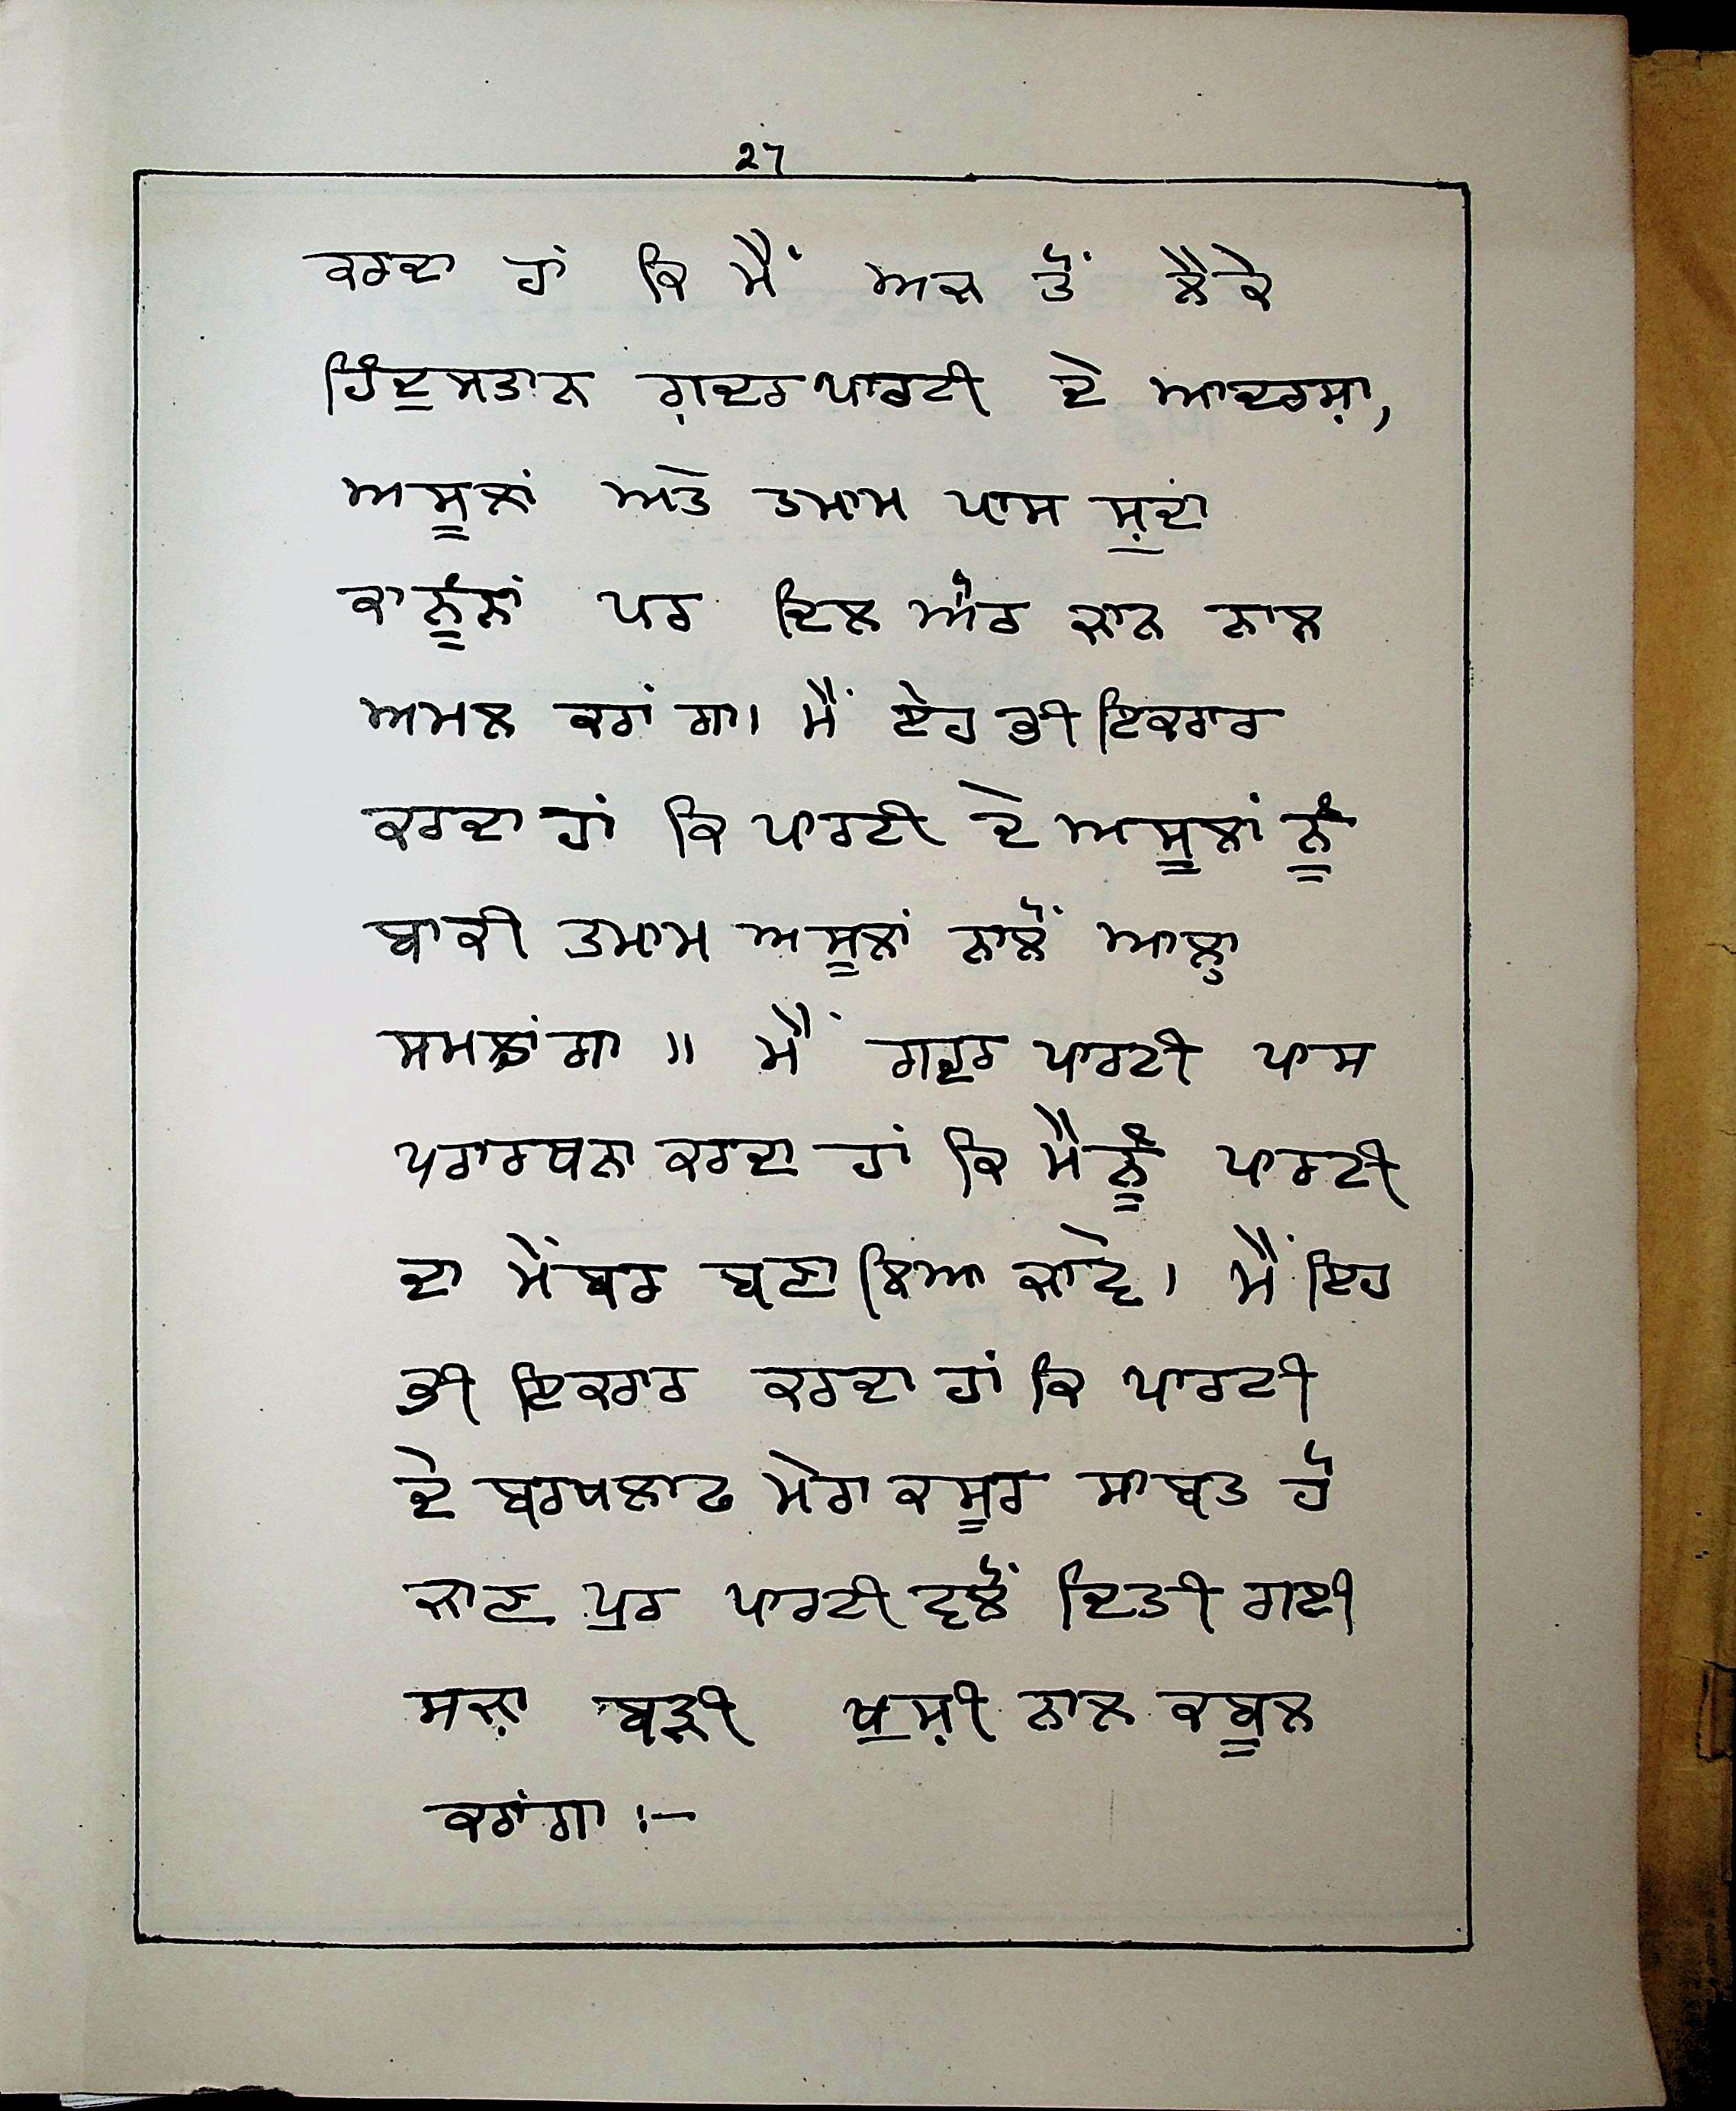 27
ਕਰਦਾ ਹਾਂ ਕਿ ਮੈਂ ਅਜ ਤੋਂ ਲੈਕੇ
ਹਿੰਦੁਸਤਾਨ ਗ਼ਦਰ ਪਾਰਟੀ ਦੇ ਆਦਰਸ਼ਾਂ,
ਅਸੂਲਾਂ ਅਤੇ ਤਮਾਮ ਪਾਸ ਸ਼ੁਦਾਂ
ਕਾਨੂੰਨਾਂ ਪਰ ਦਿਲ ਔਰ ਜਾਨ ਨਾਲ
ਅਮਲ ਕਰਾਂ ਗਾ। ਮੈਂ ਏਹ ਭੀ ਇਕਰਾਰ
ਕਰਦਾ ਹਾਂ ਕਿ ਪਾਰਟੀ ਦੇ ਅਸੂਲਾਂ ਨੂੰ
ਬਾਕੀ ਤਮਾਮ ਅਸੂਲਾਂ ਨਾਲੋਂ ਆਲ੍ਹਾ
ਸਮਝਾਂਗਾ ॥ ਮੈਂ ਗਦਰ ਪਾਰਟੀ ਪਾਸ
ਪਰਾਰਥਨਾ ਕਰਦਾ ਹਾਂ ਕਿ ਮੈਨੂੰ ਪਾਰਟੀ
ਦਾ ਮੈਂਬਰ ਬਣਾ ਲਿਆ ਜਾਵੇ। ਮੈਂ ਇਹ
ਭੀ ਇਕਰਾਰ ਕਰਦਾ ਹਾਂ ਕਿ ਪਾਰਟੀ
ਦੇ ਬਰਖਲਾਫ ਮੇਰਾ ਕਸੂਰ ਸਾਬਤ ਹੋ
ਜਾਣ ਪਰ ਪਾਰਟੀ ਵਲੋਂ ਦਿਤੀ ਗਈ
ਸਜ਼ਾ ਬੜੀ ਖੁਸ਼ੀ ਨਾਲ ਕਬੂਲ
ਕਰਾਂਗਾ :-